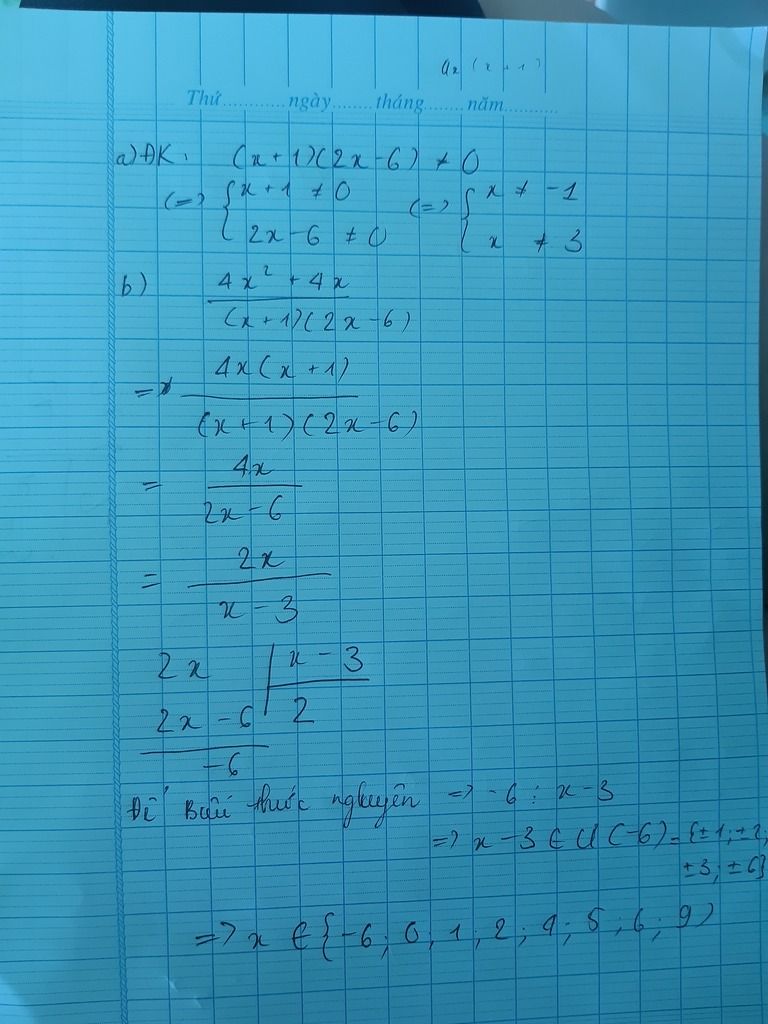 4x (x + 1)
Thứ............ngày........tháng........năm...........
a) ĐK: (x+1)(2x-6) ≠ 0
(=> { x+1 ≠ 0 (=> { x ≠ -1
2x-6 ≠ 0 x ≠ 3
b) 4x² + 4x
(x+1)(2x-6)
= 4x(x+1)
(x+1)(2x-6)
= 4x
2x-6
= 2x
x-3
2x | x-3
2x-6 | 2
-6
Để Biểu thức nguyên => -6 ⋮ x-3
=> x-3 ∈ Ư(-6) = {±1; ±2;
±3; ±6}
=> x ∈ {-6; 0; 1; 2; 4; 5; 6; 9}